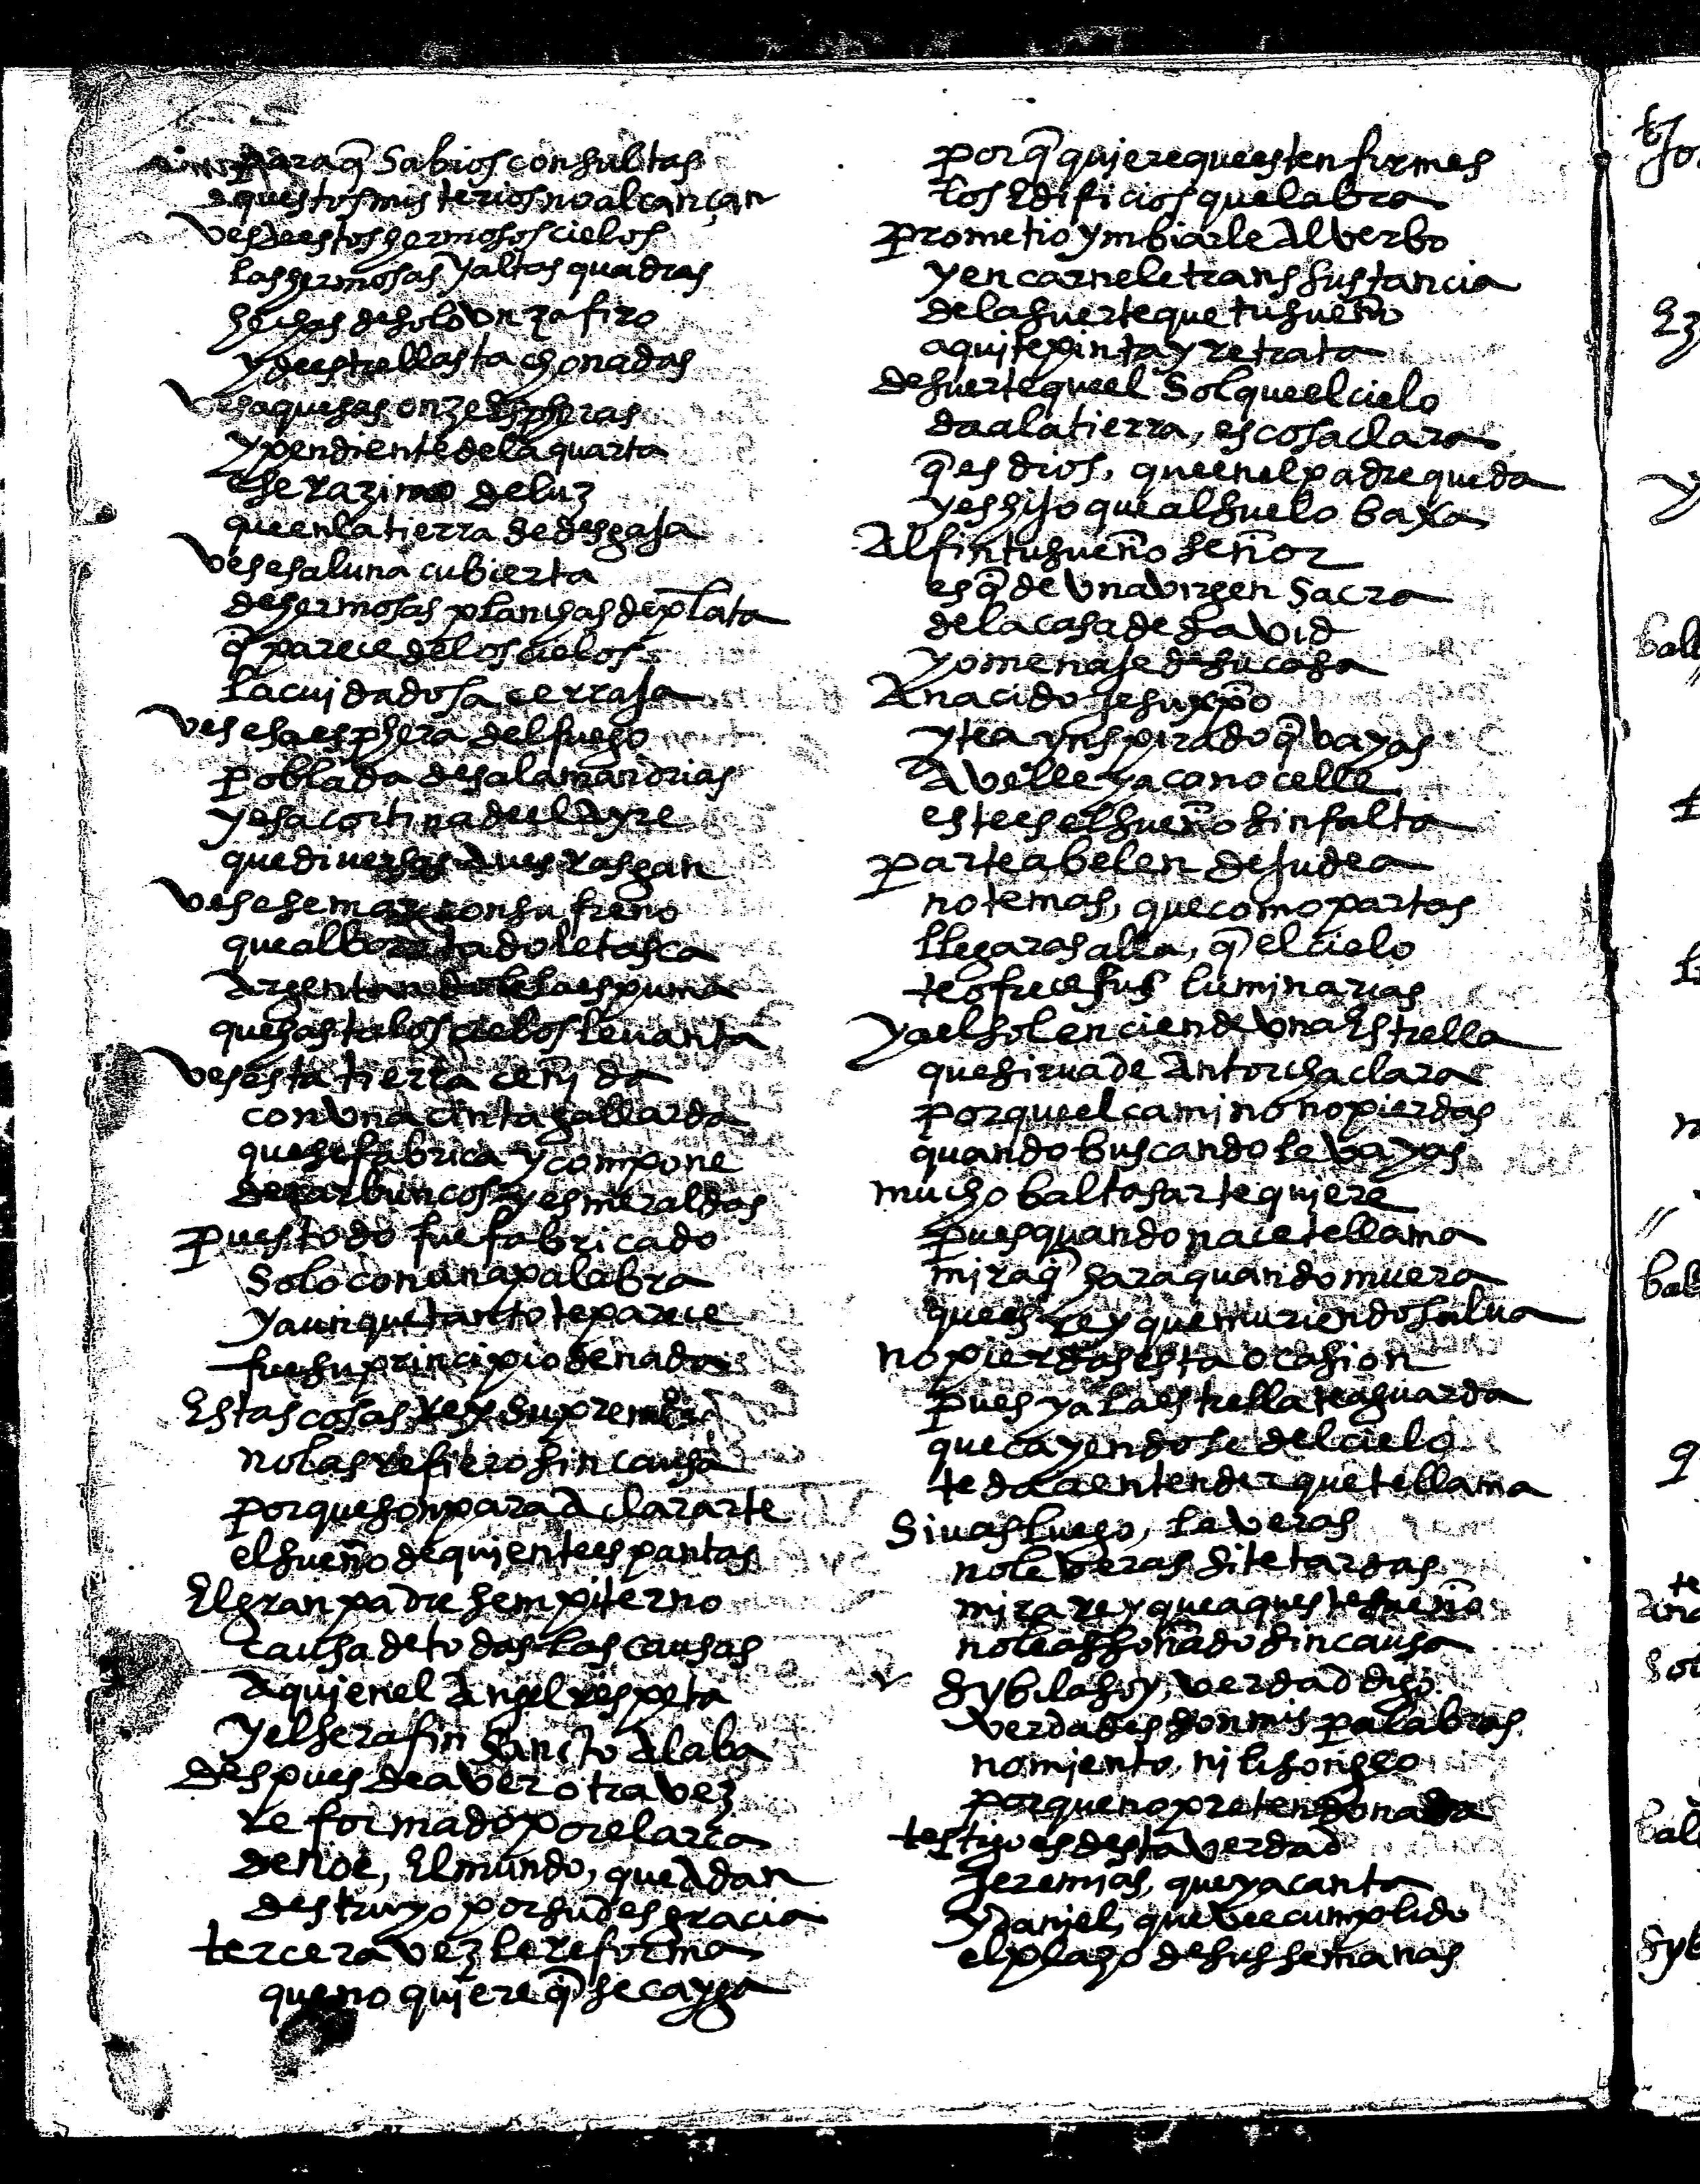 para q̃ Sabios consultas
aquestos misterios no alcançan
Ves de estos hermosos cielos
las hermosas y altas quadras
hechas de solo vn zafiro
y de estrellas tachonadas
Ves aquesas onze espheras
y pendiente de la quarta
ese razimo de luz
que en la tierra de desgaja
Ves esa luna cubierta
de hermosas planchas de plata
q̃ parece de los cielos
la cuidadosa cerraja
Ves esa esphera del fuego
poblada de salamandrias
y esa cortina de el Ayre
que diuersas Aues rasgan
Ves ese mar con su freno
que alborotado le tasca
Argentandole la espuma
que hasta los cielos leuanta
Ves esta tierra ceñida
con vna cinta gallarda
que se fabrica y compone
de carbuncos y esmeraldas
pues todo fue fabricado
Solo con una palabra
y aunque tanto te parece
fue su principio de nada
Estas cosas rey supremo
no las refiero sin causa
porque son para Aclararte
el sueño de quien te espantas
El gran padre sempiterno
causa de todas las causas
A quien el Angel respeta
y el serafin sancto Alaba
despues de aver otra vez
reformado por el arca
de noe, El mundo, que Adan
destruyo por su desgracia
tercera vez le reforma
que no quiere q̃ se cayga
porq̃ quiere que esten firmes
los Edificios que labra
prometio ymbiarle Al verbo
y en carne le transsustancia
de la suerte que tu sueño
aqui te pinta y retrata
de suerte que el Sol que el cielo
da a la tierra, es cosa clara
q̃ es dios, que en el padre queda
y es hijo que al suelo baxa
Al fin tu sueño señor
es q̃ de vna virgen Sacra
de la casa de david
y omenaje de su casa
A nacido jesuxp̃o
y te a ynspirado q̃ vayas
A velle y a conocelle
este es el sueño sin falta
parte a belen de judea
no temas, que como partas
llegaras alla, q̃ el cielo
te ofrece sus luminarias
ya el sol enciende vna Estrella
que sirua de Antorcha clara
porque el camino no pierdas
quando buscandole vayas
mucho baltasar te quiere
pues quando nace te llama
mira q̃ hara quando muera
que es rey que muriendo salua
no pierdas esta ocasion
pues ya la estrella te aguarda
que cayendose del cielo
te da a entender que te llama
Si vas luego, le veras
no le veras si te tardas
mira rey que aqueste sueño
no le as soñado sin causa
v Sybila soy, verdad digo
verdades son mis palabras
no miento, ni lisongeo
porque no pretendo nada
testigo es desta verdad
Jeremias, que ya canta
y daniel, que vee cumplido
el plazo de sus semanas